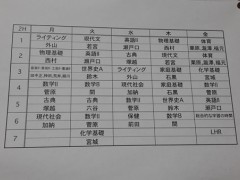 2H 月 火 水 木 金
1 ライティング 現代文 英語II 物理基礎 体育
外山 若宮 瀬戸口 西村
2 物理基礎 英語II 現代文 体育
西村 瀬戸口 若宮
3 世界史A ライティング 家庭基礎 化学基礎
鈴木 外山 石黒 宮城
4 数学II 数学B 現代社会 家庭基礎 数学II
菅原 加納 石黒 菅原
5 古典 古典 数学II 世界史A 英語II
塚越 菅原 鈴木 瀬戸口
6 現代社会 数学II 保健 数学B
加納 菅原 前田
7 化学基礎 LHR
宮城